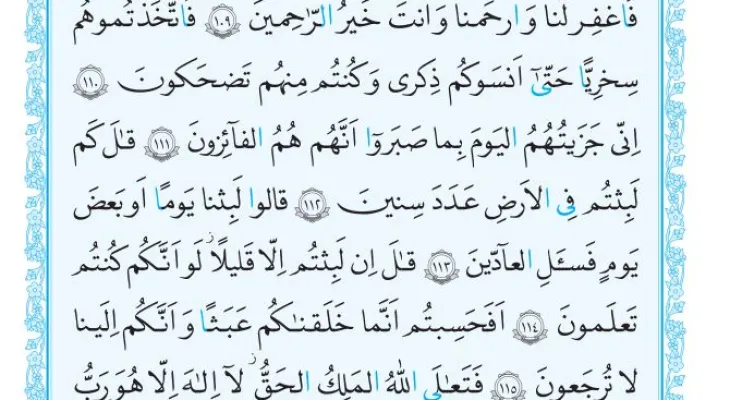 فَاغفِر لَنا وَارحَمنا وَاَنتَ خَيرُ الرّاحِمينَ ﴿١٠٩﴾ فَاتَّخَذتُموهُم
سِخرِيًّا حَتّىٰٓ اَنسَوكُم ذِكرى وَكُنتُم مِنهُم تَضحَكونَ ﴿١١٠﴾
اِنّى جَزَيتُهُمُ اليَومَ بِما صَبَرَوٓا اَنَّهُم هُمُ الفآئِزونَ ﴿١١١﴾ قالَ كَم
لَبِثتُم فِى الاَرضِ عَدَدَ سِنينَ ﴿١١٢﴾ قالوا لَبِثنا يَومًا اَو بَعضَ
يَومٍ فَسـَٔلِ العآدّينَ ﴿١١٣﴾ قالَ اِن لَبِثتُم اِلّا قَليلًا ۖ لَو اَنَّكُم كُنتُم
تَعلَمونَ ﴿١١٤﴾ اَفَحَسِبتُم اَنَّما خَلَقنٰكُم عَبَثًا وَاَنَّكُم اِلَينا
لا تُرجَعونَ ﴿١١٥﴾ فَتَعالَى اللّٰهُ المَلِكُ الحَقُّ ۖ لآ اِلٰهَ اِلّا هُوَ رَبُّ